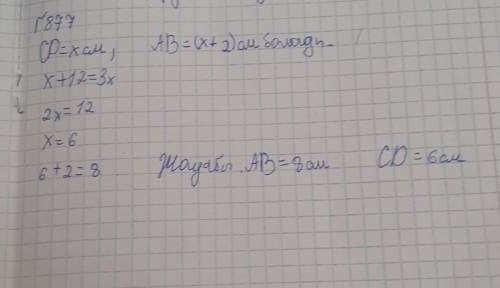 1877
CD=x см, AB=(x+2) см болады.
x+12=3x
2x=12
x=6
6+2=8 Жауабы. AB=8 см CD=6 см